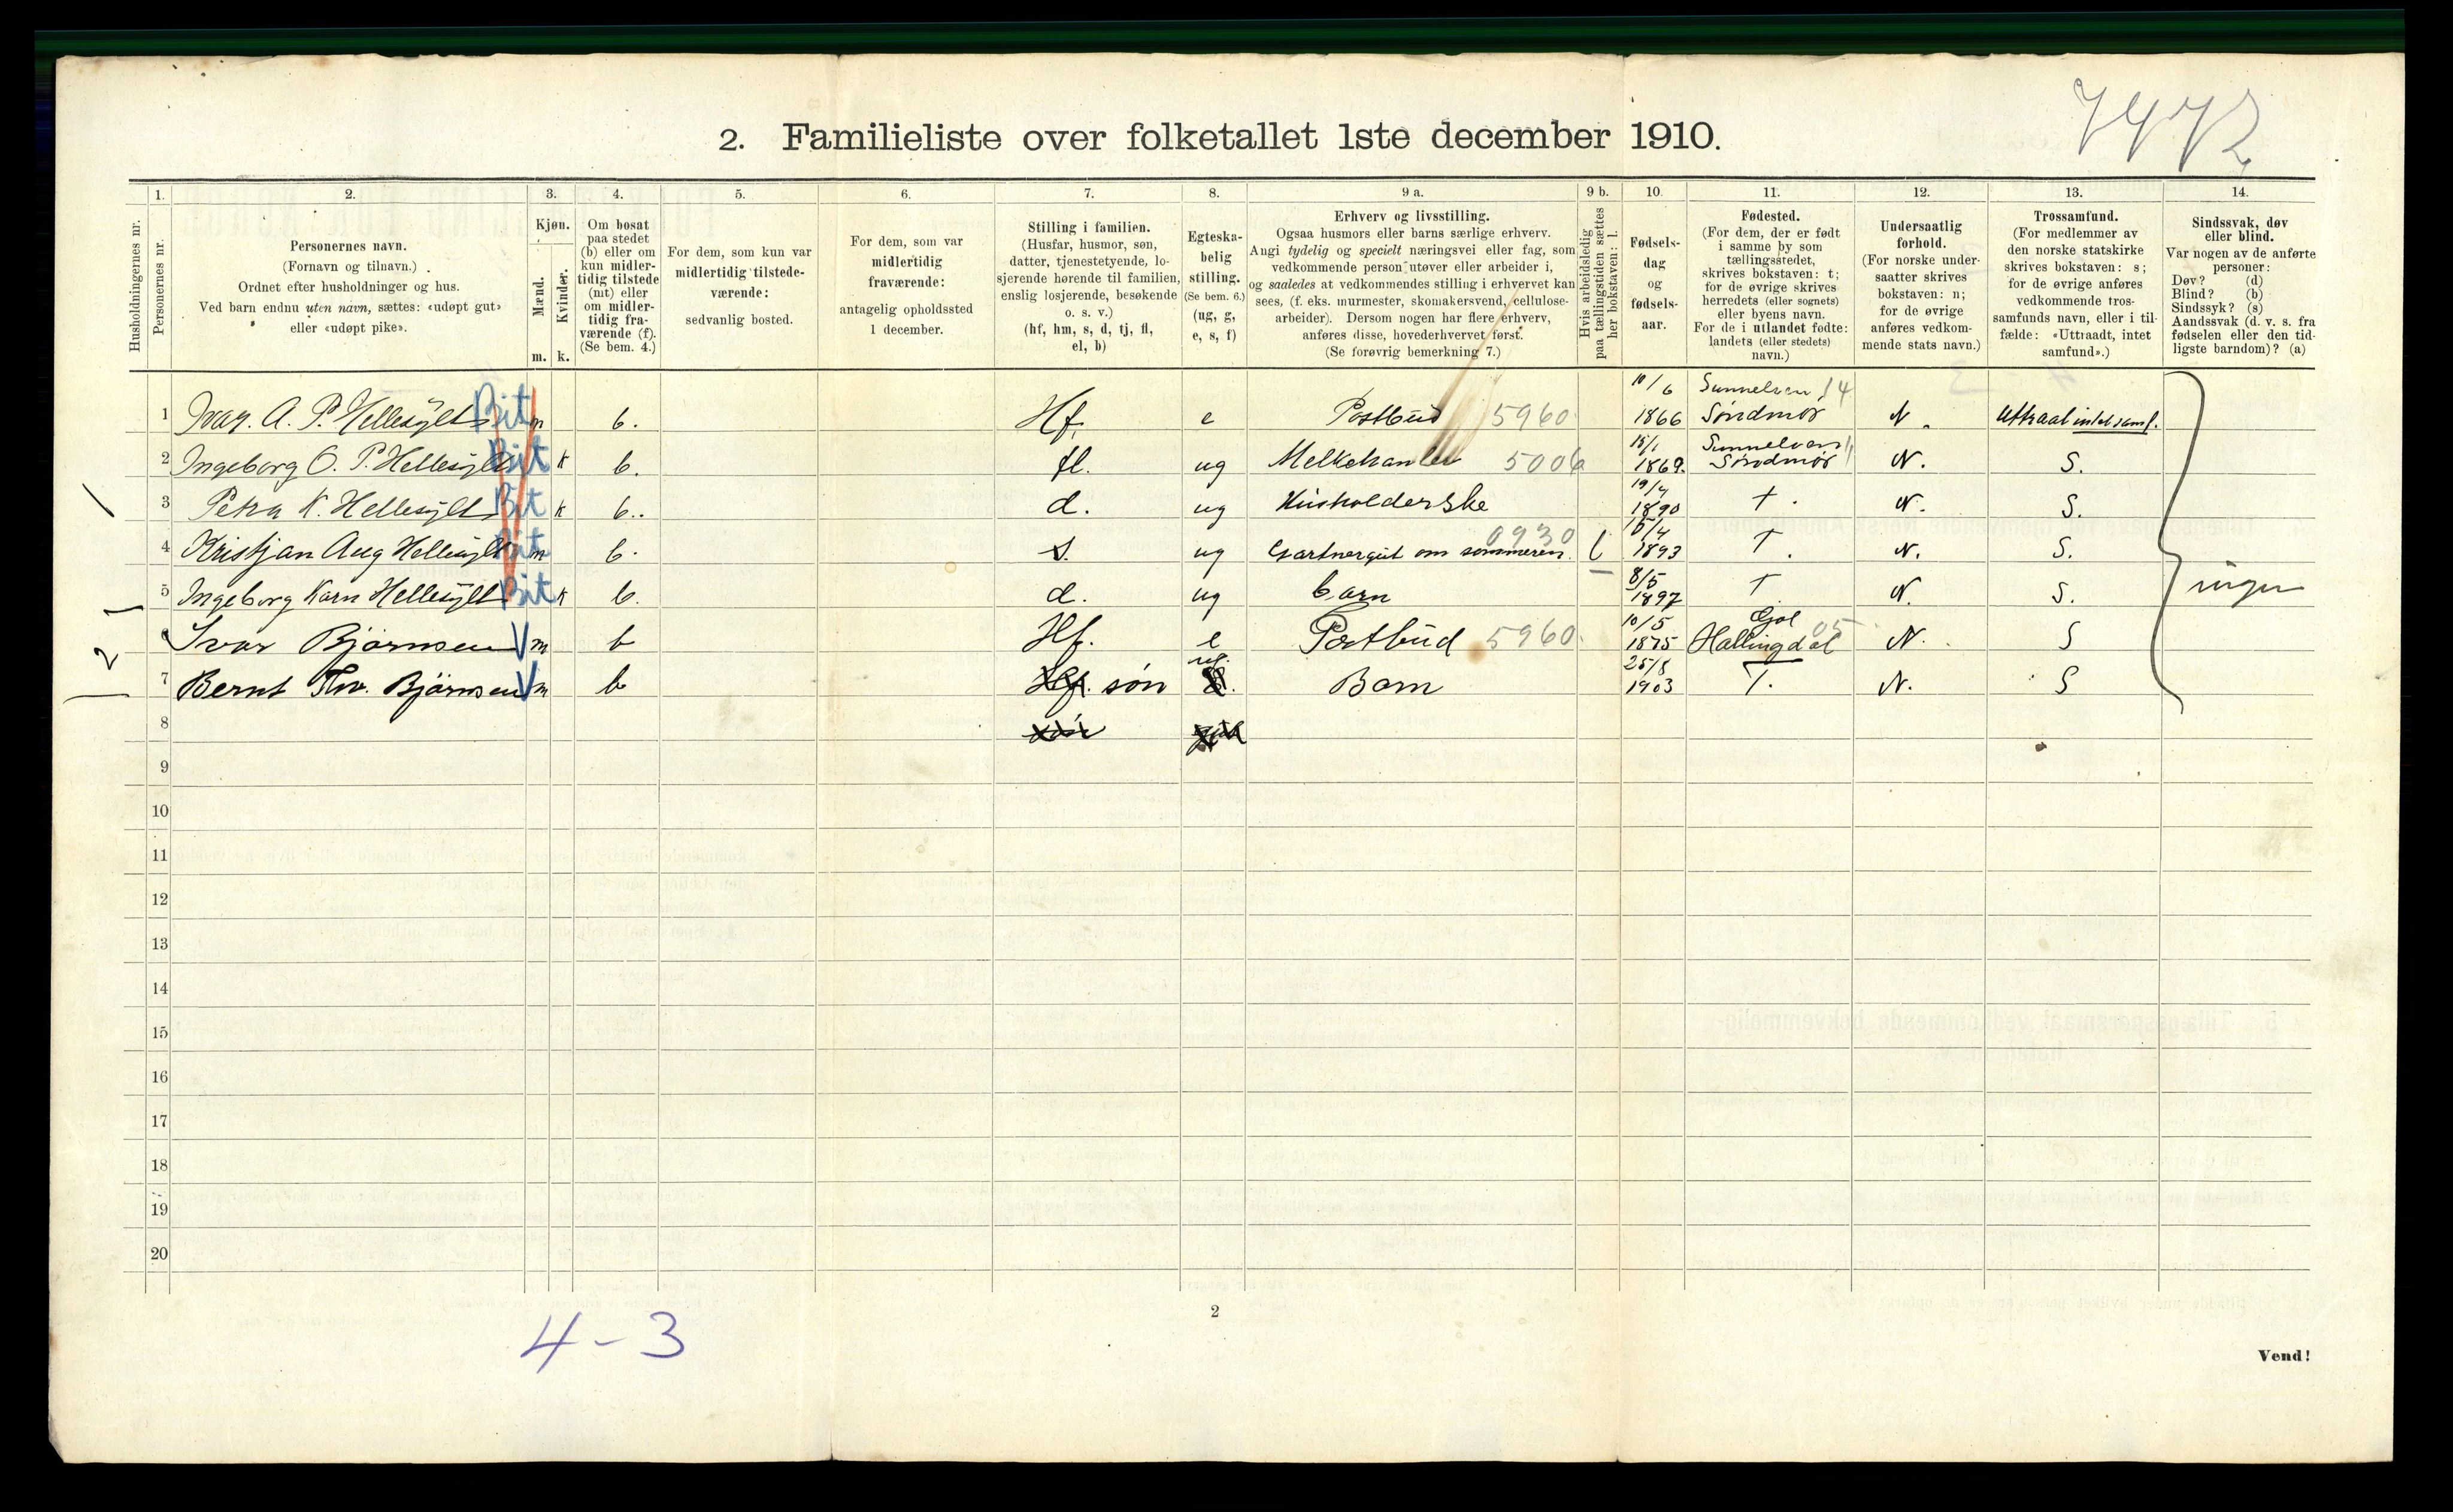 7472
2. Familieliste over folketallet 1ste december 1910.
Husholdningernes nr.
1. Personernes nr.
2. Personernes navn.
(Fornavn og tilnavn.)
Ordnet efter husholdninger og hus.
Ved barn endnu uten navn, sættes: «udøpt gut»
eller «udøpt pike».
3. Kjøn.
Mænd. m.
Kvinder. k.
4. Om bosat
paa stedet
(b) eller om
kun midler-
tidig tilstede
(mt) eller
om midler-
tidig fra-
værende (f).
(Se bem. 4.)
5. For dem, som kun var
midlertidig tilstede-
værende:
sedvanlig bosted.
6. For dem, som var
midlertidig
fraværende:
antagelig opholdssted
1 december.
7. Stilling i familien.
(Husfar, husmor, søn,
datter, tjenestetyende, lo-
sjerende hørende til familien,
enslig losjerende, besøkende
o. s. v.)
(hf, hm, s, d, tj, fl,
el, b)
8. Egteska-
belig
stilling.
(Se bem. 6.)
(ug, g,
e, s, f)
9 a. Erhverv og livsstilling.
Ogsaa husmors eller barns særlige erhverv.
Angi tydelig og specielt næringsvei eller fag, som
vedkommende person utøver eller arbeider i,
og saaledes at vedkommendes stilling i erhvervet kan
sees, (f. eks. murmester, skomakersvend, cellulose-
arbeider). Dersom nogen har flere erhverv,
anføres disse, hovederhvervet først.
(Se forøvrig bemerkning 7.)
9 b. Hvis arbeidsledig
paa tællingstiden sættes
her bokstaven: l.
10. Fødsels-
dag
og
fødsels-
aar.
11. Fødested.
(For dem, der er født
i samme by som
tællingsstedet,
skrives bokstaven: t;
for de øvrige skrives
herredets (eller sognets)
eller byens navn.
For de i utlandet fødte:
landets (eller stedets)
navn.)
12. Undersaatlig
forhold.
(For norske under-
saatter skrives
bokstaven: n;
for de øvrige
anføres vedkom-
mende stats navn.)
13. Trossamfund.
(For medlemmer av
den norske statskirke
skrives bokstaven: s;
for de øvrige anføres
vedkommende tros-
samfunds navn, eller i til-
fælde: «Uttraadt, intet
samfund».)
14. Sindssvak, døv
eller blind.
Var nogen av de anførte
personer:
Døv? (d)
Blind? (b)
Sindssyk? (s)
Aandssvak (d. v. s. fra
fødselen eller den tid-
ligste barndom)? (a)
1 Ivar. A. P. Hellesylt Bit m b. Hf. e Postbud 5960 10/6 1866 Sunnelven 14 Søndmør N. Uttraat intet samf.
2 Ingeborg O. P. Hellesylt Bit k b. fl. ug 5006 15/1 1869. Sunnelven Søndmør N. S.
3 Petra K. Hellesylt Bit k b.. d. ug Husholderske 19/4 1890 T. N. S.
4 Kristjan Aug Hellesylt Bit m b. s. ug Gartnergut om sommeren. 0930 l 15/4 1893 T. N. S.
5 Ingeborg Karn Hellesylt Bit k b. d. ug barn 8/5 1897 T N. S. ingen
6 Ivar Bjørnsen V m b Hf. e Postbud 5960. 10/5 1875 Gol 05 Hallingdal N. S
7 Bernt Thv. Bjørnsen V m b søn ug. Barn 25/8 1903 T. N. S
8
9
10
11
12
13
14
15
16
17
18
19
20
1 2 1
2
4 - 3
Vend!